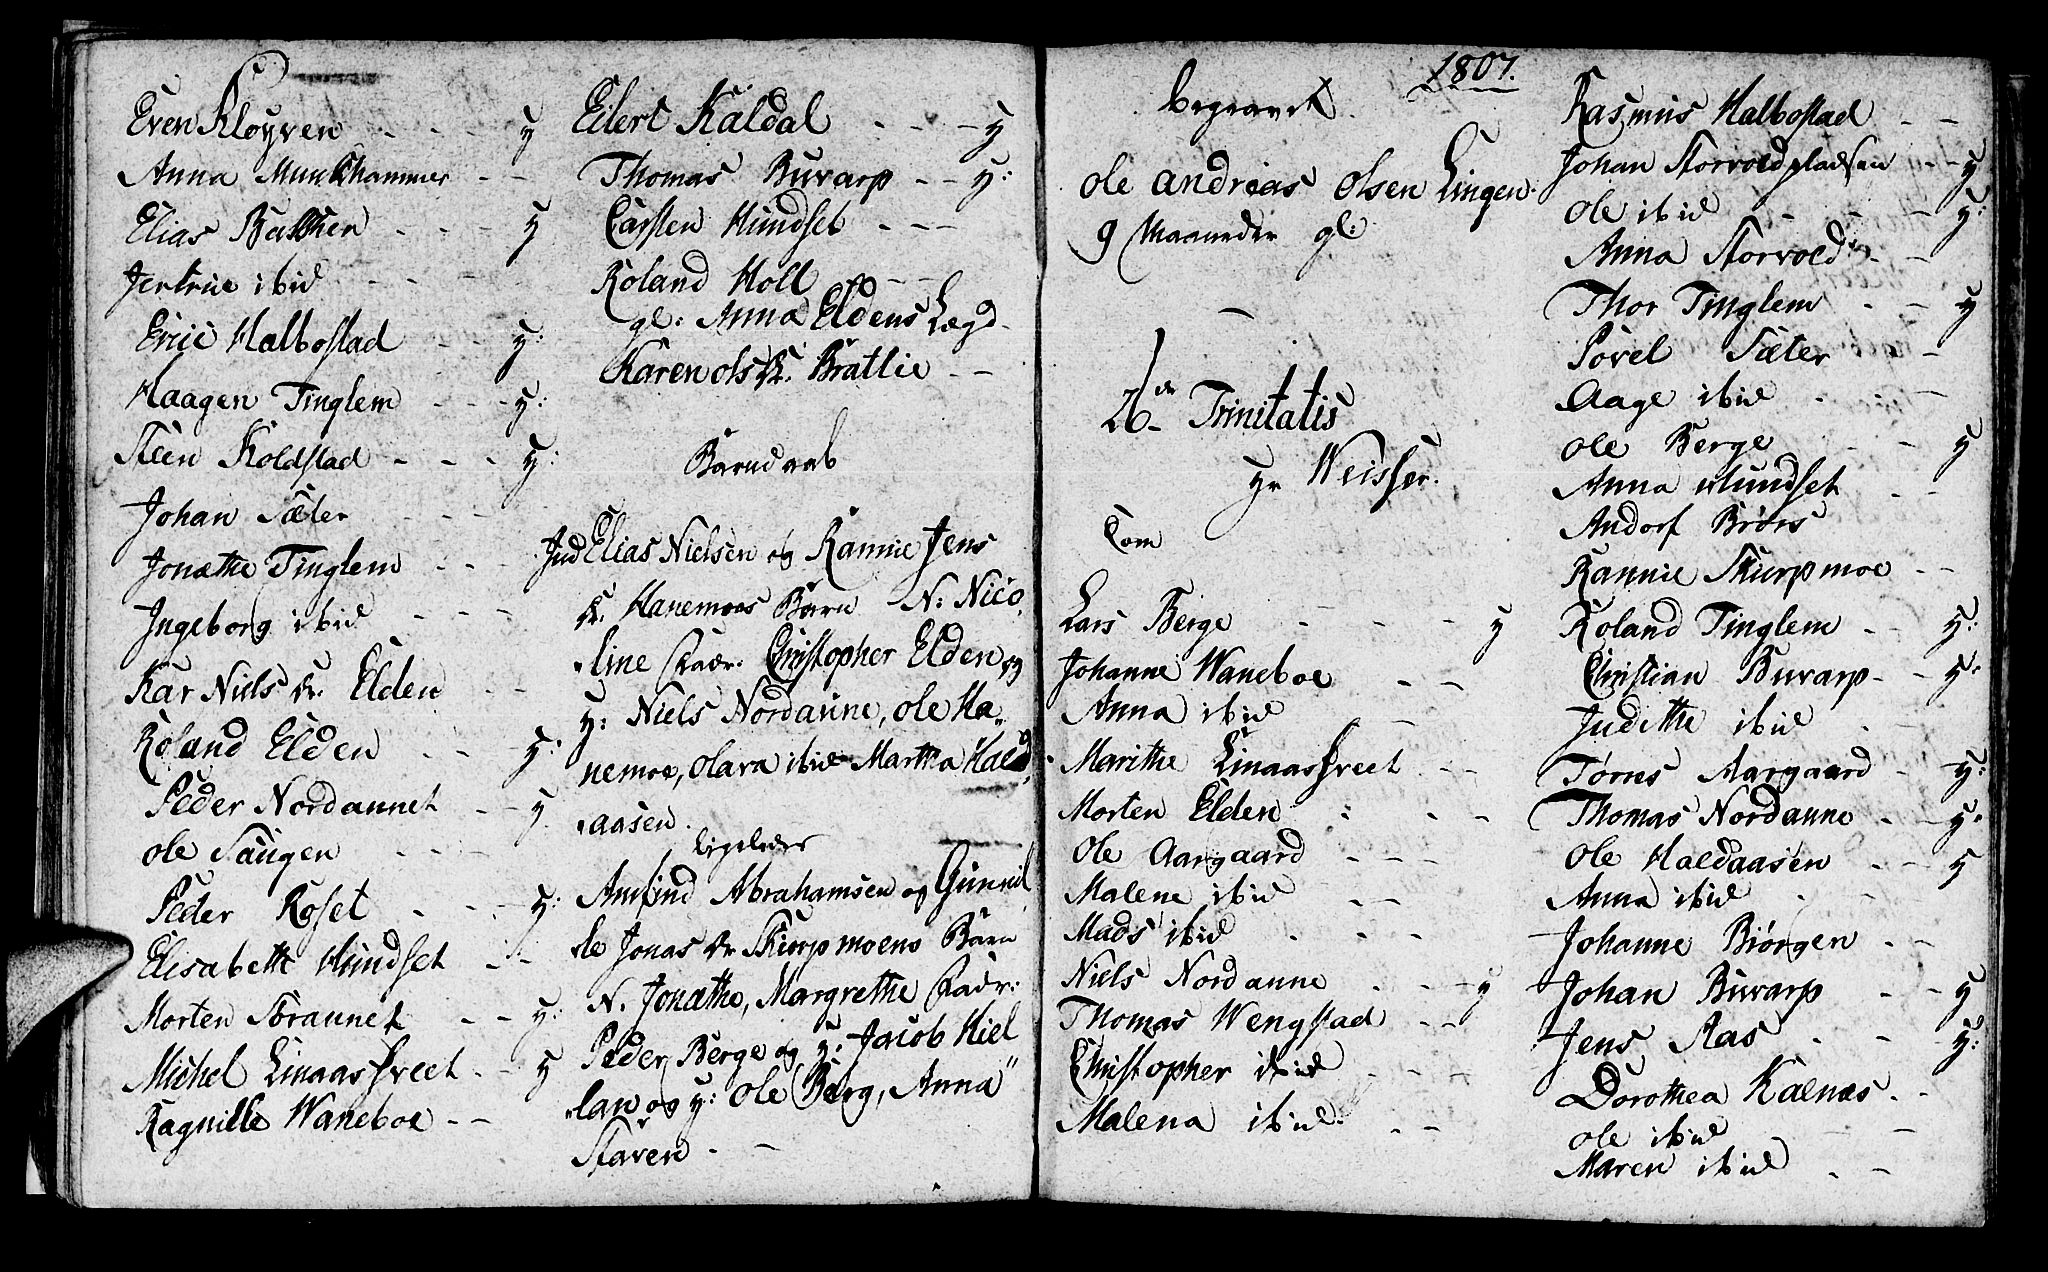 Even Kløyven - - - y
Anna Munkhammer - -
Elias Bakken - - - y
Jertrue ibid - - -
Eric Halbostad - - y:
Haagen Tinglem - - - y:
Steen Koldstad - - - y:
Johan Sæter - - -
Jonæthe Tinglem - - -
Ingeborg ibid - - -
Kar Niels dr. Elden - -
Roland Elden - - y:
Peder Nordaunet - - y.
Ole Saugen - - -
Peder Roset - - - y:
Elisabeth Hundset - -
Morten Søraunet - - y:
Michel Linaasfreet - - y
Ragnille Waneboe - -
Eilert Kaldal - - - y
Thomas Buvarp - - y:
Carsten Hundset - - -
Roland Holl - -
gl: Anna Eldens Lægd
Karen Ols dr. Brattie - -
Barnedaab
Ind Elias Nielsen og Rannie Jens
dr. Hanemoes Barn N: Nico,
line Fadr. Christopher Elden og
y: Niels Nordaune, Ole Ha,,
nemoe, Olava ibid Martha Hald,
aasen.
ligeledes
Amund Abrahamsen og Gunnil
de Jonas dr Skurpmoens Barn
N. Jonæthe, Margrethe Fadr:
Peder Berge og y. Jacob Hiel
lan og y: Ole Berg, Anna
Staven - -
1807.
begravet.
Ole Andreas Olsen Lingen
9 Maaneder gl:
26de Trinitatis
Hr Weisser.
Com
Lars Berge - - - y
Johanne Waneboe - -
Anna ibid -
Marithe Linaasfreet - -
Morten Elden - -
Ole Aargaard - - -
Malene ibid - -
Mads ibid - - -
Niels Nordaune - - - y
Thomas Wengstad - -
Christopher ibid - - -
Malena ibid: - -
Rasmus Halbostad - -
Johan Storvoldpladsen - - y
Ole ibid - - - y:
Anna Storvold - -
Thor Tinglem - - y
Povel Sæter - -
Aage ibid - -
Ole Berge - - y
Anna Hundset - -
Andorf Brøns
Rannie Skurpmoe - -
Roland Tinglem - - y:
Christian Buvarp - - y:
Judithe ibid -
Tørres Aargaard - - y:
Thomas Nordaune - - y.
Ole Haldaasen - - y
Anna ibid - -
Johanne Biørgen - -
Johan Buvarp - - y
Jens Aas - - y:
Dorothea Kalnæs - -
Ole ibid - -
Maren ibid - -